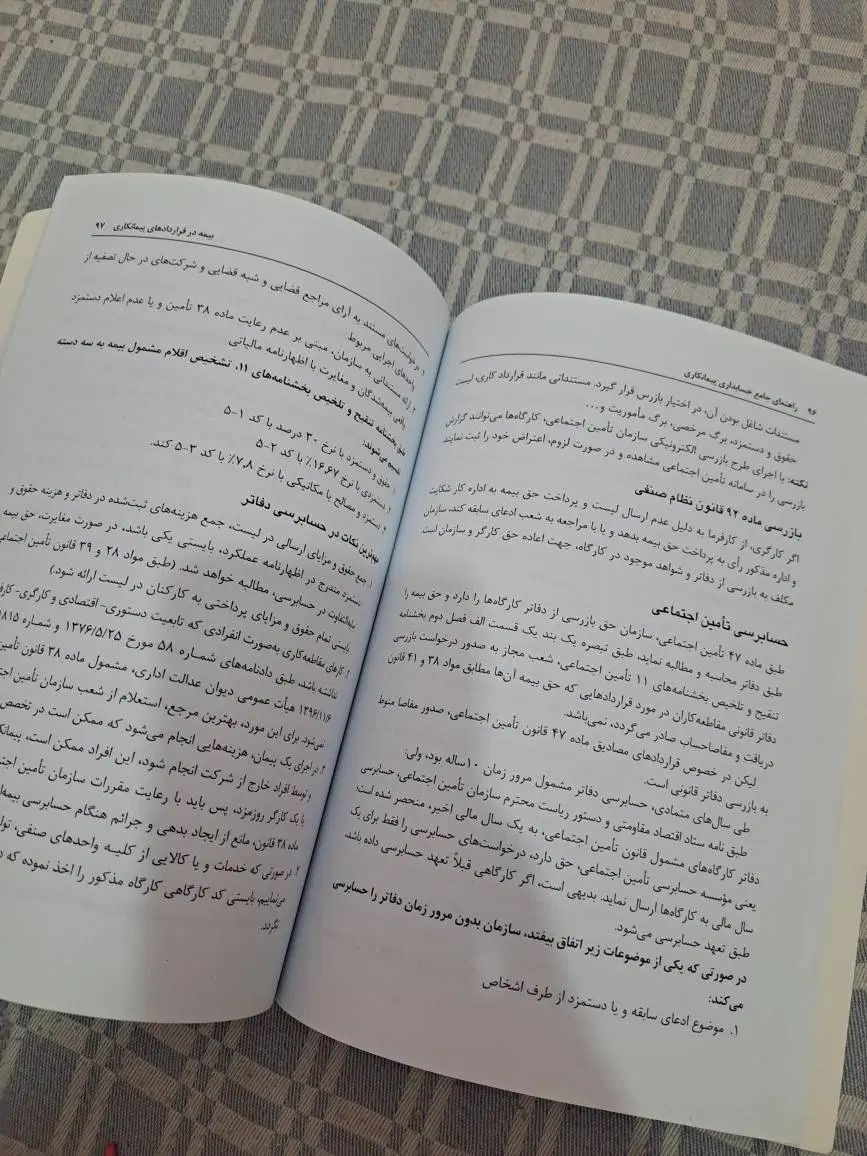 ۹۶ راهنمای جامع حسابداری پیمانکاری
مستندات شاغل بودن آن، در اختیار بازرس قرار گیرد. مستنداتی مانند قرارداد کاری، لیست
حقوق و دستمزد، برگ مرخصی، برگ مأموریت و...
نکته: با اجرای طرح بازرسی الکترونیکی سازمان تأمین اجتماعی، کارگاه‌ها می‌توانند گزارش
بازرسی را در سامانه تأمین اجتماعی مشاهده و در صورت لزوم، اعتراض خود را ثبت نمایند
بازرسی ماده ۹۲ قانون نظام صنفی
اگر کارگری، از کارفرما به دلیل عدم ارسال لیست و پرداخت حق بیمه به اداره کار شکایت
و اداره مذکور رأی به پرداخت حق بیمه بدهد و یا با مراجعه به شعب ادعای سابقه کند، سازمان
مکلف به بازرسی از دفاتر و شواهد موجود در کارگاه، جهت اعاده حق کارگر و سازمان است.
حسابرسی تأمین اجتماعی
طبق ماده ۴۷ تأمین اجتماعی، سازمان حق بازرسی از دفاتر کارگاه‌ها را دارد و حق بیمه را
طبق دفاتر محاسبه و مطالبه نماید، طبق تبصره یک بند یک قسمت الف فصل دوم بخشنامه
تنقیح و تلخیص بخشنامه‌های ۱۱ تأمین اجتماعی، شعب مجاز به صدور درخواست بازرسی
دفاتر قانونی مقاطعه‌کاران در مورد قراردادهایی که حق بیمه آن‌ها مطابق مواد ۳۸ و ۴۱ قانون
دریافت و مفاصاحساب صادر می‌گردد، نمی‌باشد.
لیکن در خصوص قراردادهای مصادیق ماده ۴۷ قانون تأمین اجتماعی، صدور مفاصا منوط
به بازرسی دفاتر قانونی است.
طی سال‌های متمادی، حسابرسی دفاتر مشمول مرور زمان ۱۰ساله بود، ولی:
طبق نامه ستاد اقتصاد مقاومتی و دستور ریاست محترم سازمان تأمین اجتماعی، حسابرسی
دفاتر کارگاه‌های مشمول قانون تأمین اجتماعی، به یک سال مالی اخیر، منحصر شده است؛
یعنی مؤسسه حسابرسی تأمین اجتماعی، حق دارد، درخواست‌های حسابرسی را فقط برای یک
سال مالی به کارگاه‌ها ارسال نماید. بدیهی است، اگر کارگاهی قبلاً تعهد حسابرسی داده باشد،
طبق تعهد حسابرسی می‌شود.
در صورتی که یکی از موضوعات زیر اتفاق بیفتد، سازمان بدون مرور زمان دفاتر را حسابرسی
می‌کند:
۱. موضوع ادعای سابقه و یا دستمزد از طرف اشخاص
بیمه در قراردادهای پیمانکاری ۹۷
۲. درخواست‌های مستند به آرای مراجع قضایی و شبه قضایی و شرکت‌های در حال تصفیه از
واحدهای اجرایی مربوط
۳. ارائه مستنداتی به سازمان، مبنی بر عدم رعایت ماده ۳۸ تأمین و یا عدم اعلام دستمزد
واقعی بیمه‌شدگان و مغایرت با اظهارنامه مالیاتی
طبق بخشنامه تنقیح و تلخیص بخشنامه‌های ۱۱، تشخیص اقلام مشمول بیمه به سه دسته
تقسیم می‌شوند:
۱. حقوق و دستمزد با نرخ ۳۰ درصد با کد ۱-۵
۲. دستمزدی با نرخ ۱۶,۶۷٪ با کد ۲-۵
۳. دستمزد و مصالح یا مکانیکی با نرخ ۷,۸٪ با کد ۳-۵ کند.
مهم‌ترین نکات در حسابرسی دفاتر
۱. جمع حقوق و مزایای ارسالی در لیست، جمع هزینه‌های ثبت‌شده در دفاتر و هزینه حقوق و
دستمزد مندرج در اظهارنامه عملکرد، بایستی یکی باشد، در صورت مغایرت، حق بیمه
مابه‌التفاوت در حسابرسی، مطالبه خواهد شد. (طبق مواد ۲۸ و ۳۹ قانون تأمین اجتماعی
بایستی تمام حقوق و مزایای پرداختی به کارکنان در لیست ارائه شود.)
۲. کارهای مقاطعه‌کاری به‌صورت انفرادی که تابعیت دستوری- اقتصادی و کارگری- کارفر
نداشته باشد، طبق دادنامه‌های شماره ۵۸ مورخ ۱۳۷۶/۵/۲۵ و شماره ۸۱۵
۱۳۹۶/۱۱/۶ هیأت عمومی دیوان عدالت اداری، مشمول ماده ۳۸ قانون تأمین
نمی‌شود. برای این مورد، بهترین مرجع، استعلام از شعب سازمان تأمین اجتما
۳. در اجرای یک پیمان، هزینه‌هایی انجام می‌شود که ممکن است در تخصص
و توسط افراد خارج از شرکت انجام شود، این افراد ممکن است، پیمانکا
یا یک کارگر روزمزد، پس باید با رعایت مقررات سازمان تأمین اجتم
ماده ۳۸ قانون، مانع از ایجاد بدهی و جرائم هنگام حسابرسی بیمه‌ا
۴. در صورتی که خدمات و یا کالایی از کلیه واحدهای صنفی، تول
می‌نماییم، بایستی کد کارگاهی کارگاه مذکور را اخذ نموده که د
نگردد.